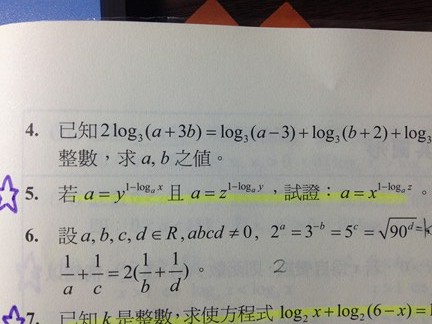 4. 已知 2log₃(a+3b) = log₃(a−3) + log₃(b+2) + log₃
整數，求 a, b 之值。
5. 若 a = y^{1−logₐ x} 且 a = z^{1−logₐ y}，試證：a = x^{1−logₐ z}。
6. 設 a, b, c, d ∈ R, abcd ≠ 0, 2^a = 3^{−b} = 5^c = √90^d =
1/a + 1/c = 2(1/b + 1/d)。 2
7. 已知 k 是整數，求使方程式 log₂ x + log₂(6−x) =